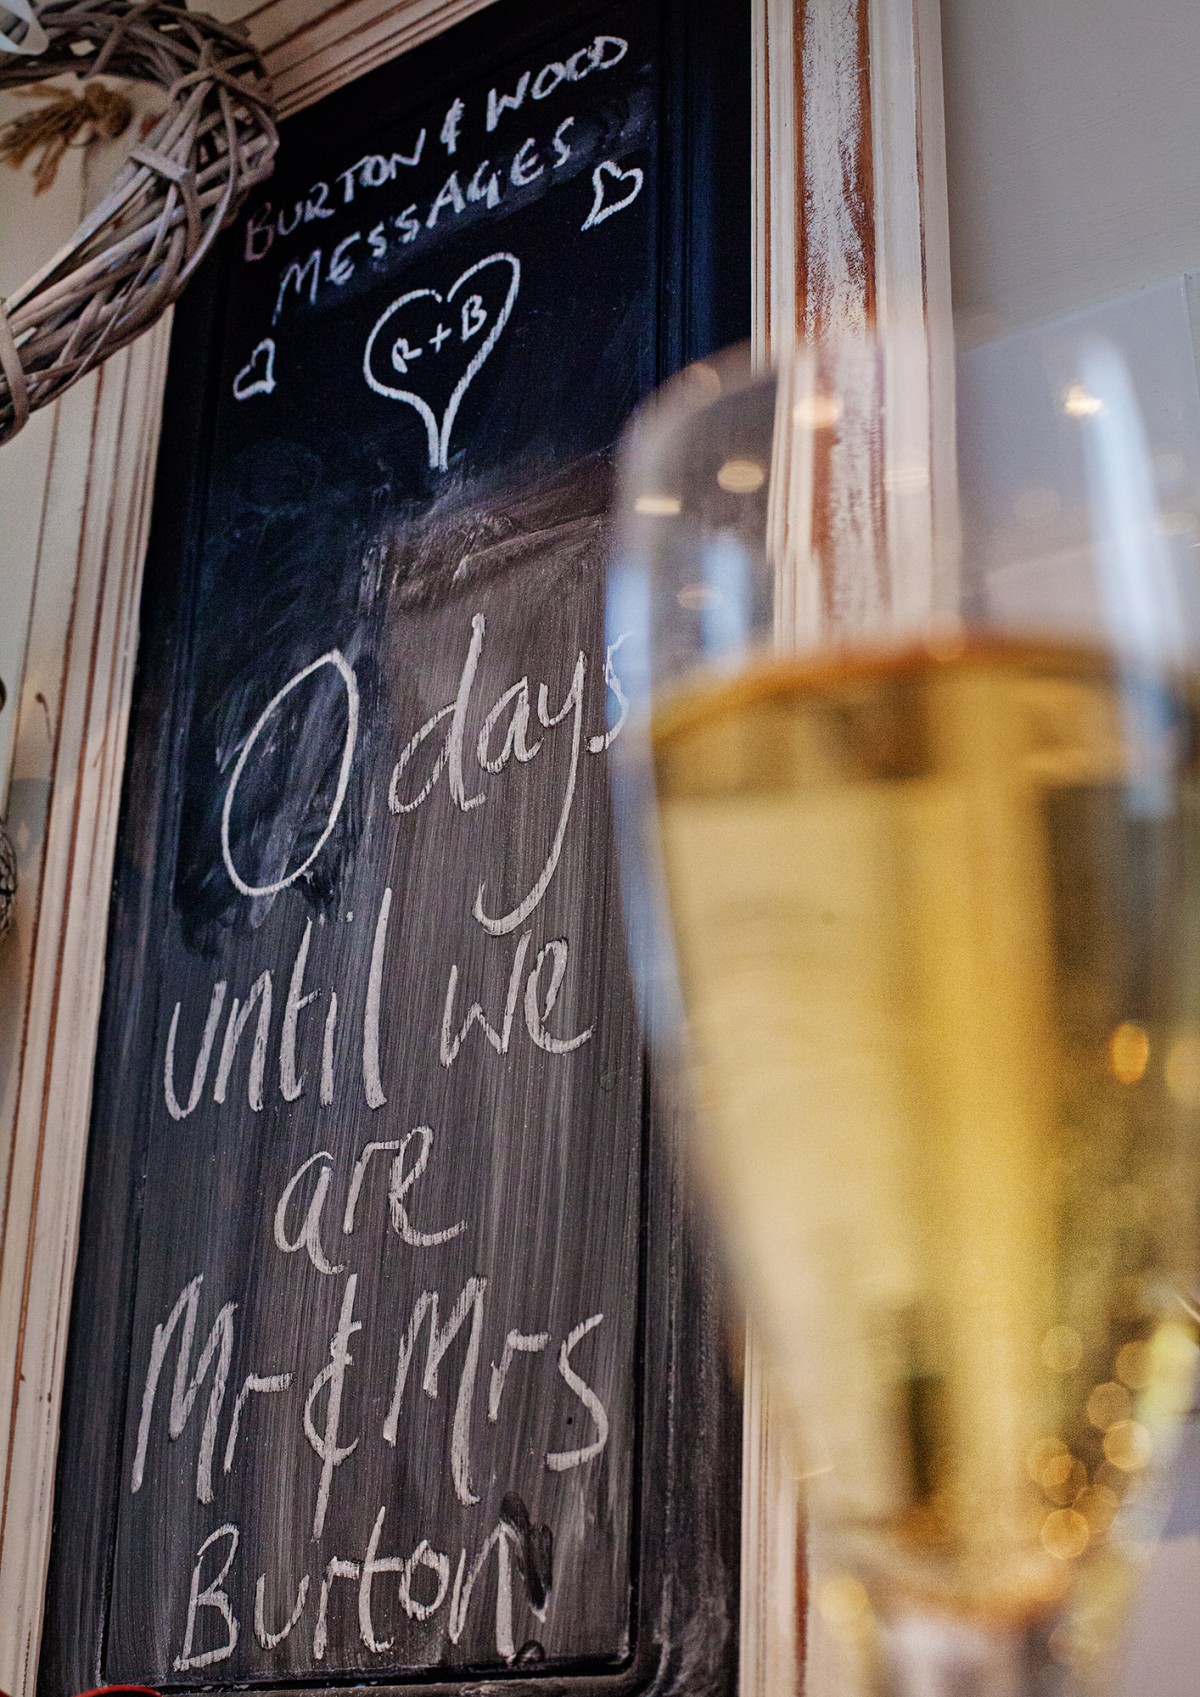 BURTON & WOOD
MESSAGES
R+B
0 days
until we
are
Mr & Mrs
Burton